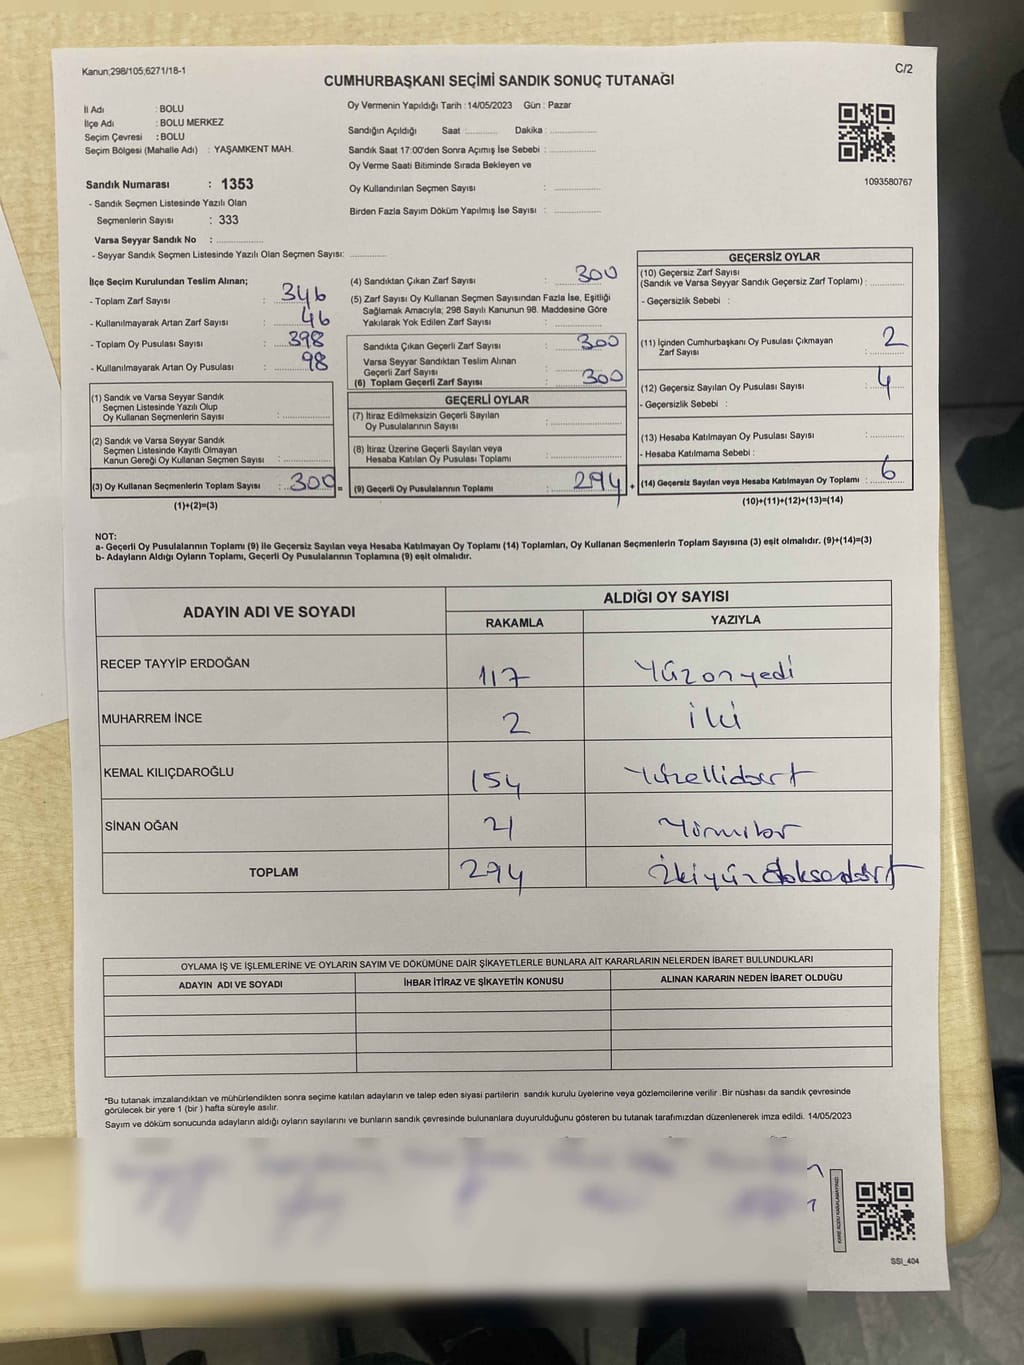 Kanun;298/105;6271/18-1
C/2
CUMHURBAŞKANI SEÇİMİ SANDIK SONUÇ TUTANAĞI
İl Adı : BOLU
İlçe Adı : BOLU MERKEZ
Seçim Çevresi : BOLU
Seçim Bölgesi (Mahalle Adı) : YAŞAMKENT MAH.
Sandık Numarası : 1353
- Sandık Seçmen Listesinde Yazılı Olan
Seçmenlerin Sayısı : 333
Varsa Seyyar Sandık No : ..............
- Seyyar Sandık Seçmen Listesinde Yazılı Olan Seçmen Sayısı: ..............
Oy Vermenin Yapıldığı Tarih : 14/05/2023 Gün : Pazar
Sandığın Açıldığı Saat :.......... Dakika : ..............
Sandık Saat 17:00'den Sonra Açımış İse Sebebi : ..............
Oy Verme Saati Bitiminde Sırada Bekleyen ve
Oy Kullandırılan Seçmen Sayısı : ..............
Birden Fazla Sayım Döküm Yapılmış İse Sayısı : ..............
1093580767
İlçe Seçim Kurulundan Teslim Alınan;
- Toplam Zarf Sayısı : 346
- Kullanılmayarak Artan Zarf Sayısı : 46
- Toplam Oy Pusulası Sayısı : 398
- Kullanılmayarak Artan Oy Pusulası : 98
(1) Sandık ve Varsa Seyyar Sandık
Seçmen Listesinde Yazılı Olup
Oy Kullanan Seçmenlerin Sayısı : ..............
(2) Sandık ve Varsa Seyyar Sandık
Seçmen Listesinde Kayıtlı Olmayan
Kanun Gereği Oy Kullanan Seçmen Sayısı : ..............
(3) Oy Kullanan Seçmenlerin Toplam Sayısı : 300 =
(1)+(2)=(3)
(4) Sandıktan Çıkan Zarf Sayısı : 300
(5) Zarf Sayısı Oy Kullanan Seçmen Sayısından Fazla İse, Eşitliği
Sağlamak Amacıyla; 298 Sayılı Kanunun 98. Maddesine Göre
Yakılarak Yok Edilen Zarf Sayısı : ..............
Sandıkta Çıkan Geçerli Zarf Sayısı : 300
Varsa Seyyar Sandıktan Teslim Alınan
Geçerli Zarf Sayısı : ..............
(6) Toplam Geçerli Zarf Sayısı : 300
GEÇERLİ OYLAR
(7) İtiraz Edilmeksizin Geçerli Sayılan
Oy Pusulalarının Sayısı : ..............
(8) İtiraz Üzerine Geçerli Sayılan veya
Hesaba Katılan Oy Pusulası Toplamı : ..............
(9) Geçerli Oy Pusulalarının Toplamı : 294 +
GEÇERSİZ OYLAR
(10) Geçersiz Zarf Sayısı
(Sandık ve Varsa Seyyar Sandık Geçersiz Zarf Toplamı) : ..........
- Geçersizlik Sebebi :
(11) İçinden Cumhurbaşkanı Oy Pusulası Çıkmayan
Zarf Sayısı : 2
(12) Geçersiz Sayılan Oy Pusulası Sayısı : 4
- Geçersizlik Sebebi :
(13) Hesaba Katılmayan Oy Pusulası Sayısı : ..........
- Hesaba Katılmama Sebebi :
(14) Geçersiz Sayılan veya Hesaba Katılmayan Oy Toplamı : 6
(10)+(11)+(12)+(13)=(14)
NOT:
a- Geçerli Oy Pusulalarının Toplamı (9) ile Geçersiz Sayılan veya Hesaba Katılmayan Oy Toplamı (14) Toplamları, Oy Kullanan Seçmenlerin Toplam Sayısına (3) eşit olmalıdır. (9)+(14)=(3)
b- Adayların Aldığı Oyların Toplamı, Geçerli Oy Pusulalarının Toplamına (9) eşit olmalıdır.
ADAYIN ADI VE SOYADI
ALDIĞI OY SAYISI
RAKAMLA YAZIYLA
RECEP TAYYİP ERDOĞAN 117 Yüzonyedi
MUHARREM İNCE 2 iki
KEMAL KILIÇDAROĞLU 154 Yüzellidört
SİNAN OĞAN 21 Yirmibir
TOPLAM 294 İkiyüzdoksandört
OYLAMA İŞ VE İŞLEMLERİNE VE OYLARIN SAYIM VE DÖKÜMÜNE DAİR ŞİKAYETLERLE BUNLARA AİT KARARLARIN NELERDEN İBARET BULUNDUKLARI
ADAYIN ADI VE SOYADI İHBAR İTİRAZ VE ŞİKAYETİN KONUSU ALINAN KARARIN NEDEN İBARET OLDUĞU
*Bu tutanak imzalandıktan ve mühürlendikten sonra seçime katılan adayların ve talep eden siyasi partilerin sandık kurulu üyelerine veya gözlemcilerine verilir .Bir nüshası da sandık çevresinde
görülecek bir yere 1 (bir ) hafta süreyle asılır.
Sayım ve döküm sonucunda adayların aldığı oyların sayılarını ve bunların sandık çevresinde bulunanlara duyurulduğunu gösteren bu tutanak tarafımızdan düzenlenerek imza edildi. 14/05/2023
SSI_404